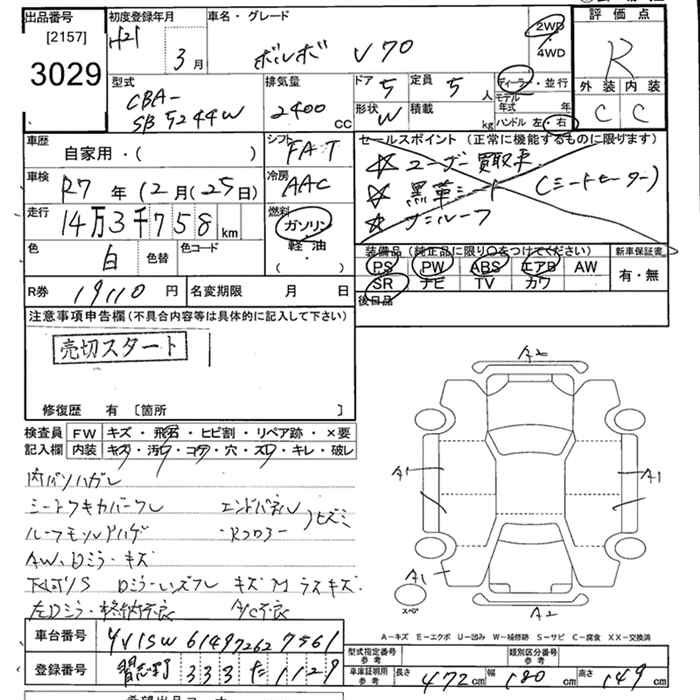 出品番号 [2157] 3029
初度登録年月 H21 3月
車名・グレード ボルボ V70
2WD・4WD
評価点 R
外装 内装
C C
型式 CBA-SB5244W
排気量 2400 CC
ドア 5 定員 5 人
形状 W 積載 kg
ディーラー・並行
モデル年式 年
ハンドル 左 右
車歴 自家用・( )
シフト FAT
車検 R7年12月(25日)
冷房 AAC
走行 14万3千758km
燃料 ガソリン 軽油・( )
色 白 色替 色コード
セールスポイント (正常に機能するものに限ります)
☆ ユーザー買取車
☆ 黒革シート (シートヒーター)
☆ サンルーフ
装備品 (純正品に限り○をつけてください) 新車保証書
PS PW ABS エアB AW 有・無
SR ナビ TV カワ
後日品
R券 19110円 名変期限 月 日
注意事項申告欄 (不具合内容等は具体的に記入して下さい)
売切スタート
修復歴 有 〔箇所 〕
検査員 FW キズ・飛石・ヒビ割・リペア跡・×要
記入欄 内装 キズ・汚れ・コゲ・穴・スレ・キレ・破レ
シートワキカバーワレ エンドパネル
ルーフモールドハゲ ・Rフロアー
AW、Dミラーキズ
A2
A1 A1
A1
スペア
A2
A-キズ E-エクボ U-凹み W-補修跡 S-サビ C-腐食 XX-交換済
車台番号 YV1SW614972627561
型式指定番号 参考 類別区分番号 参考
登録番号 習志野 333 た 1129
車庫証明用 参考 長さ 472cm 幅 180cm 高さ 149cm